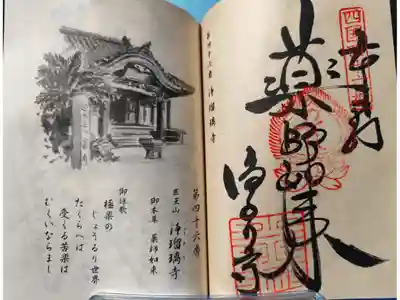 薬師如来
浄るり寺
第四十六番 浄瑠璃寺
第四十六番
医王山 浄瑠璃寺
御本尊 薬師如来
御詠歌
極楽の
じょうるり世界
たくらへは
受くる苦楽は
むくいならまし